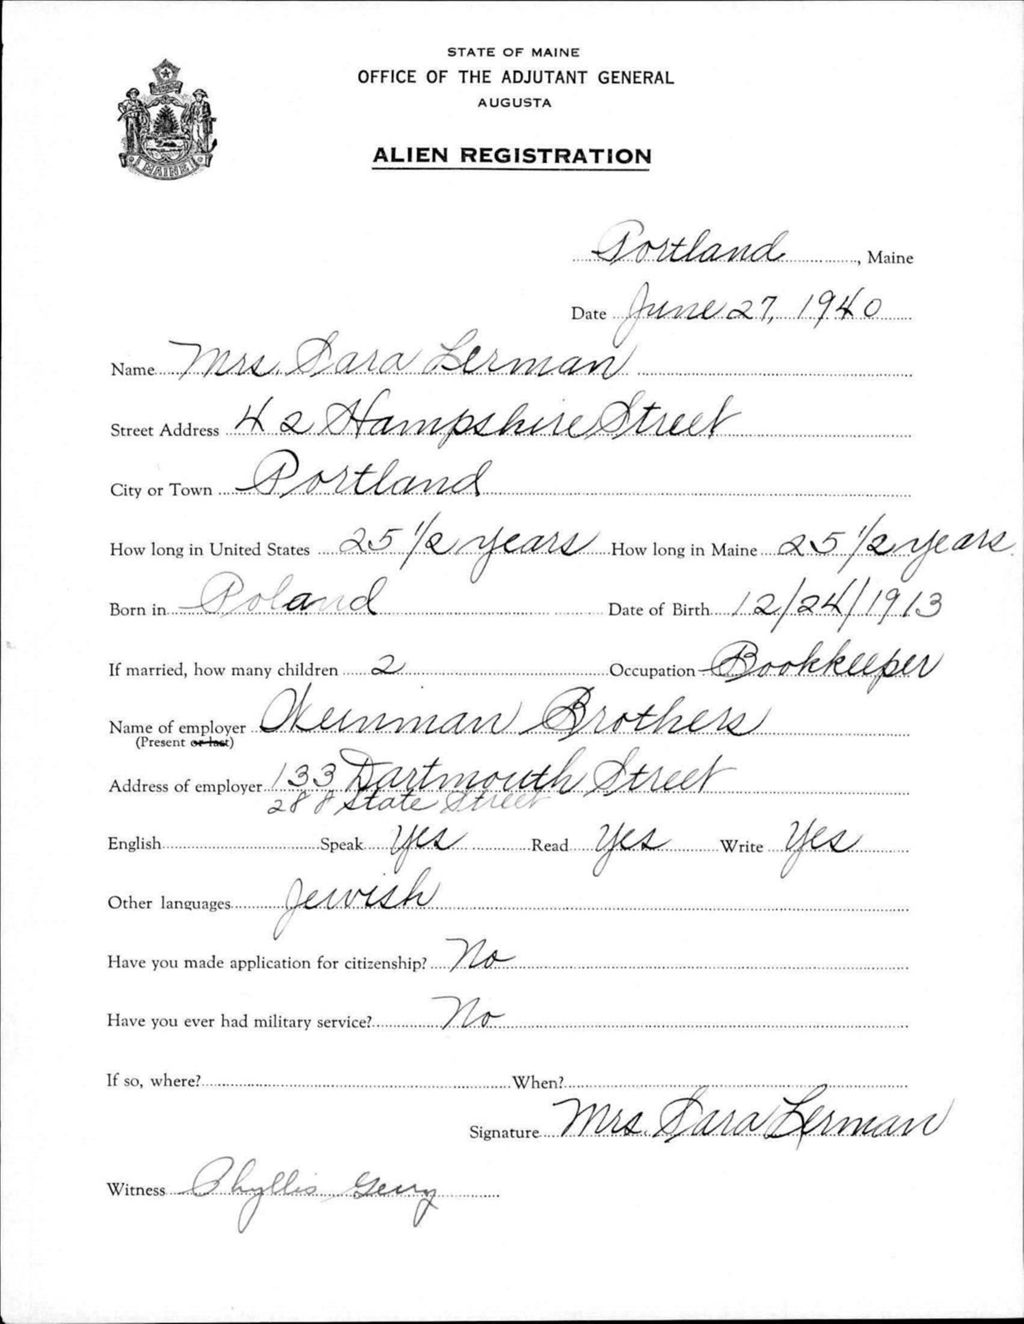 STATE OF MAINE
OFFICE OF THE ADJUTANT GENERAL
AUGUSTA
ALIEN REGISTRATION
MAINE
Portland, Maine
Date June 27, 1940
Name Mrs. Sara Lerman
Street Address 42 Hampshire Street
City or Town Portland
How long in United States 25 1/2 years How long in Maine 25 1/2 years
Born in Poland Date of Birth 12/24/1913
If married, how many children 2 Occupation Bookkeeper
Name of employer Weinman Brothers
(Present or last)
Address of employer 133 Dartmouth Street
288 State Street
English Speak Yes Read Yes Write Yes
Other languages Jewish
Have you made application for citizenship? No
Have you ever had military service? No
If so, where? When?
Signature Mrs. Sara Lerman
Witness Phyllis